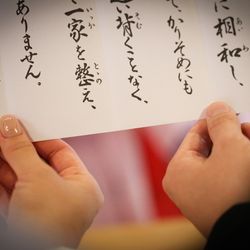 に相和し、
てかりそめにも
い背くことなく、
一家を整え、
ありません。